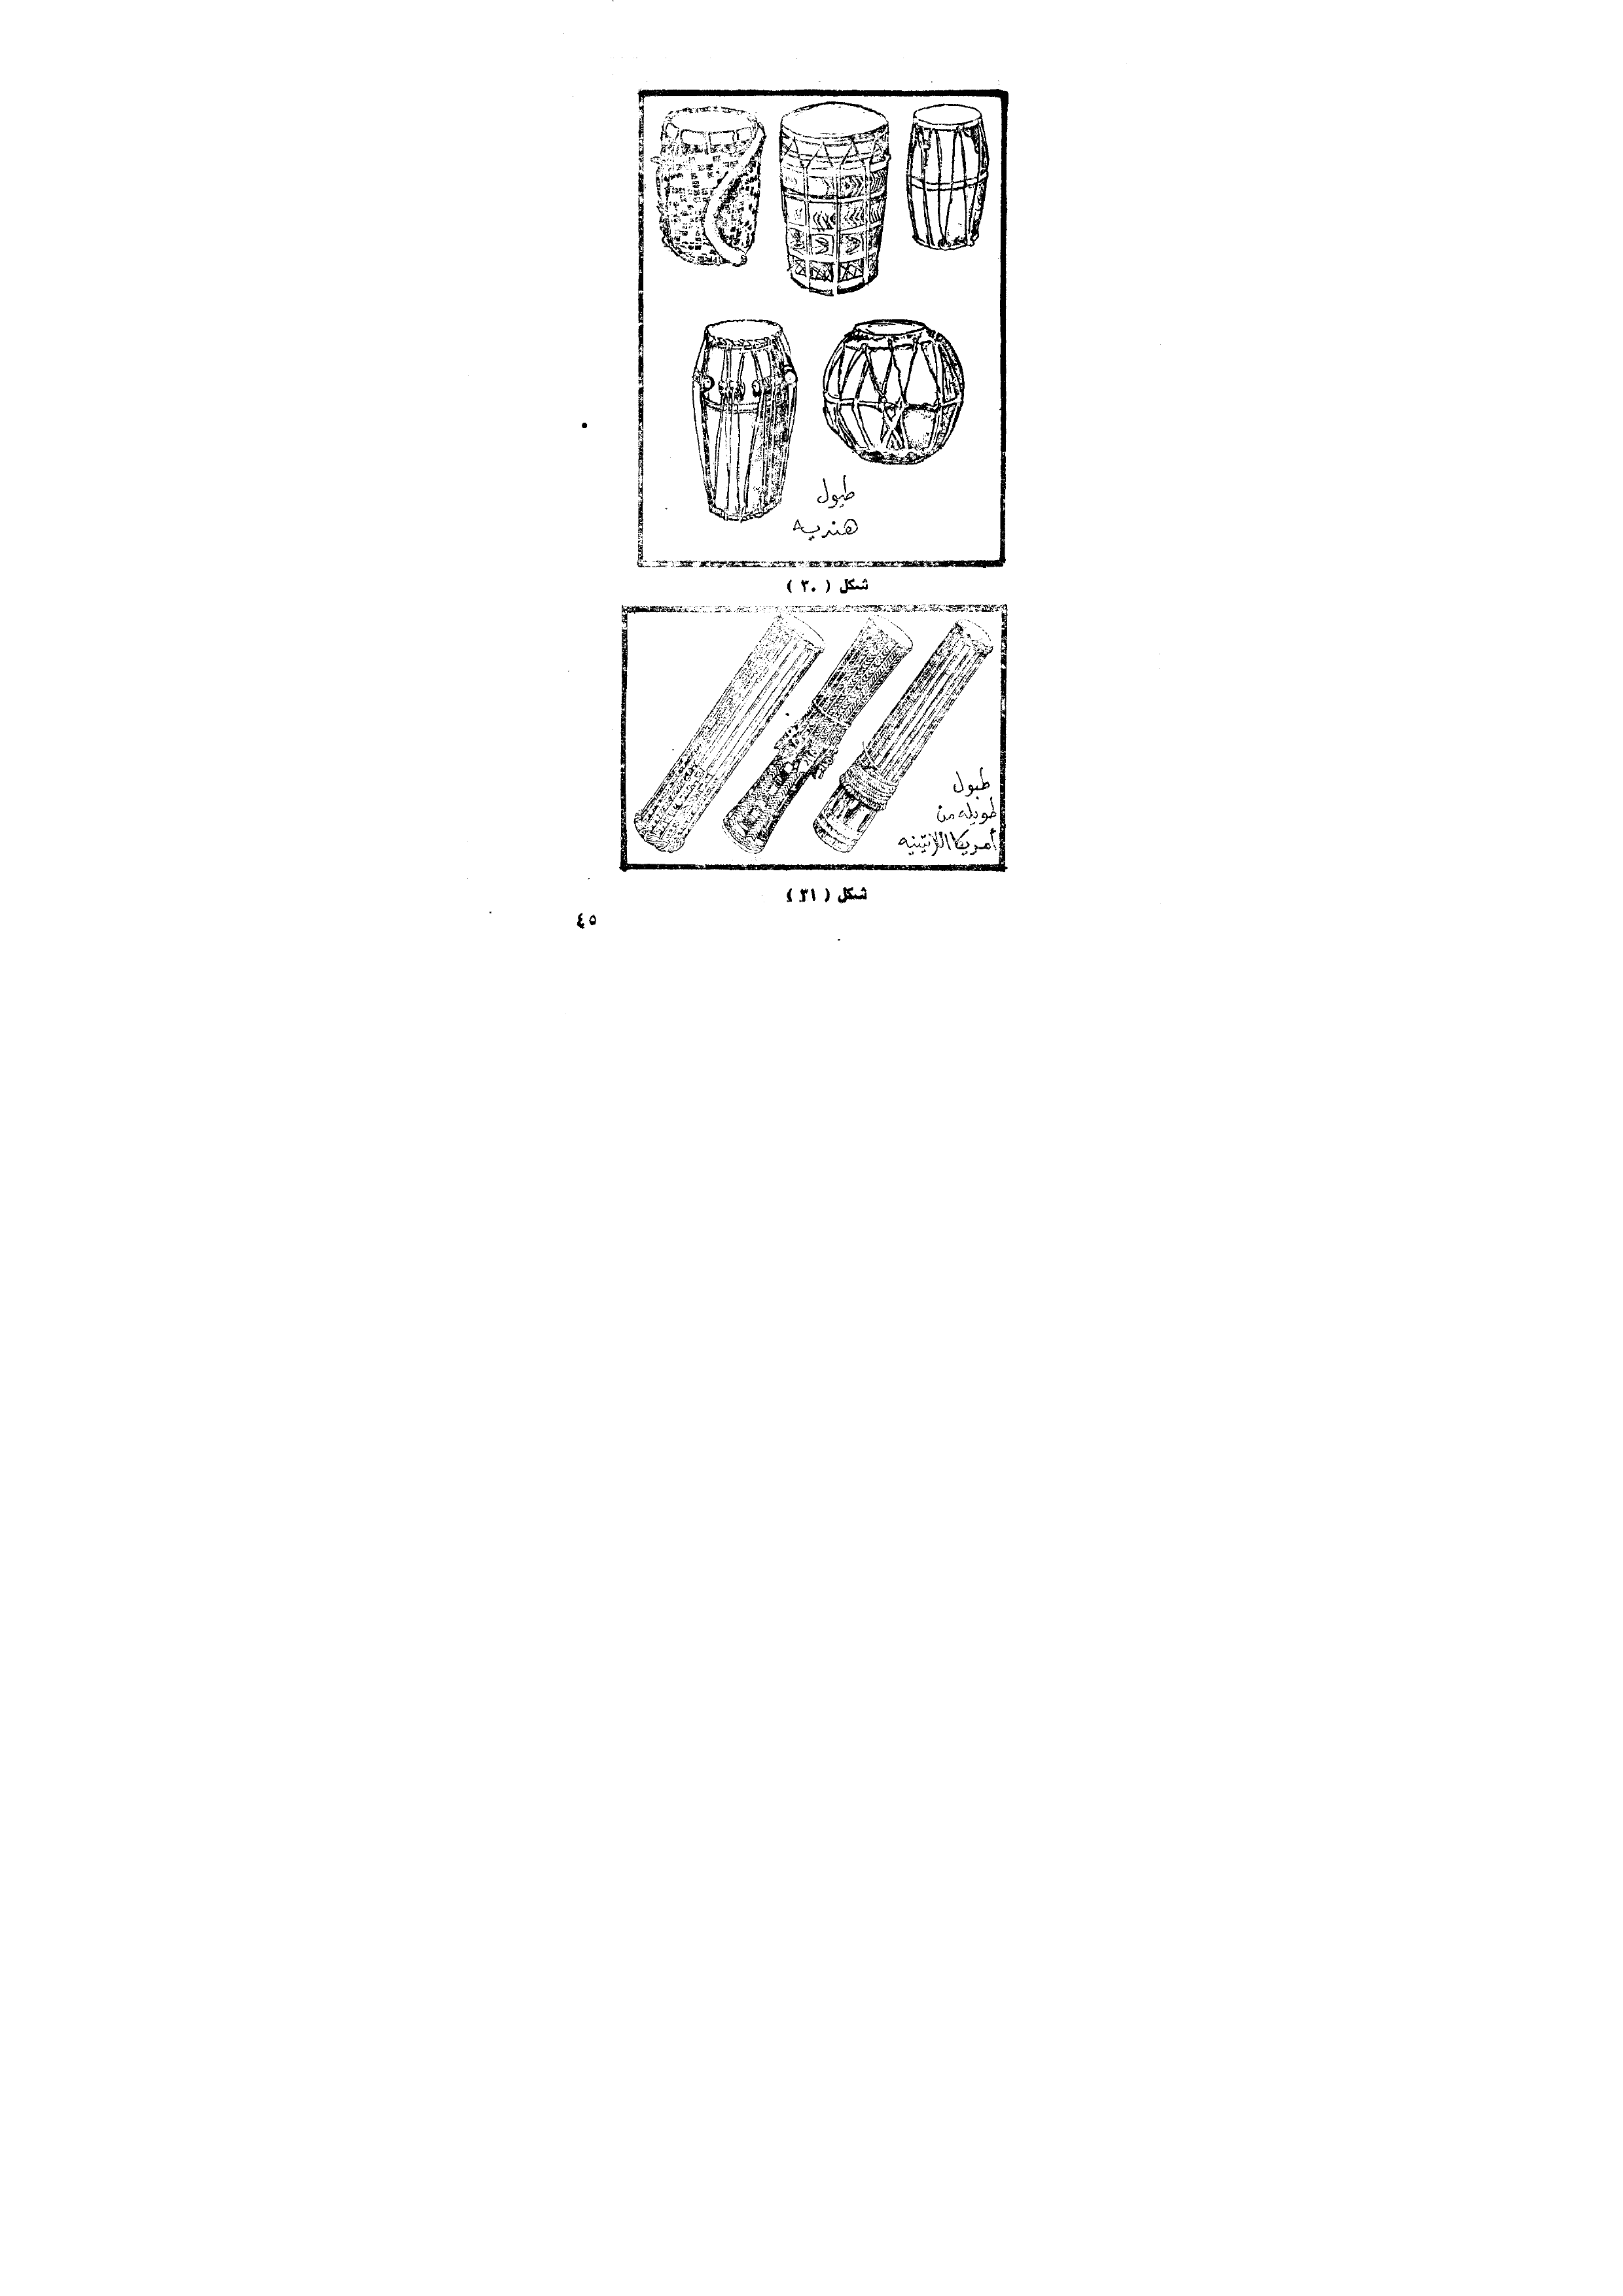 طبول
هنديه
شكل ( ٣٠ )
طبول
طويله من
أمريكا اللاتينيه
شكل ( ٣١ )
٤٥